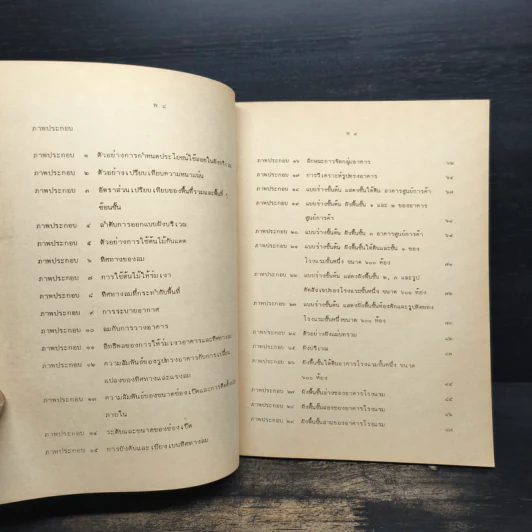 พ ๘
ภาพประกอบ
ภาพประกอบ ๑ ตัวอย่างการกำหนดประโยชน์ใช้สอยในผังบริเวณ
ภาพประกอบ ๒ ตัวอย่างเปรียบเทียบความหนาแน่น
ภาพประกอบ ๓ อัตราส่วนเปรียบเทียบของพื้นที่รวมและพื้นที่
ซ้อนชั้น
ภาพประกอบ ๔ ลำดับการออกแบบผังบริเวณ
ภาพประกอบ ๕ ตัวอย่างการใช้ต้นไม้กันแดด
ภาพประกอบ ๖ ทิศทางของลม
ภาพประกอบ ๗ การใช้ต้นไม้ให้ร่มเงา
ภาพประกอบ ๘ ทิศทางลมที่กระทำกับพื้นที่
ภาพประกอบ ๙ การระบายอากาศ
ภาพประกอบ ๑๐ ลมกับการวางอาคาร
ภาพประกอบ ๑๑ อิทธิพลของการให้ร่มเงาอาคารและทิศทางลม
ภาพประกอบ ๑๒ ความสัมพันธ์ของรูปทรงอาคารกับการเปลี่ยน
แปลงของทิศทางและแรงลม
ภาพประกอบ ๑๓ ความสัมพันธ์ของขนาดช่องเปิดและการ
ภายใน
ภาพประกอบ ๑๔ ระดับและขนาดของช่องเปิด
ภาพประกอบ ๑๕ การบังคับและเบี่ยงเบนทิศทางลม
พ ๙
ภาพประกอบ ๑๖ ลักษณะการจัดกลุ่มอาคาร
ภาพประกอบ ๑๗ การวิเคราะห์รูปทรงอาคาร
ภาพประกอบ ๑๘ แบบร่างขั้นต้น แสดงชั้นใต้ดิน อาคารศูนย์การค้า
ภาพประกอบ ๑๙ แบบร่างขั้นต้น ผังพื้นชั้น ๑ และ ๒ ของอาคาร
ศูนย์การค้า
ภาพประกอบ ๒๐ แบบร่างขั้นต้น ผังพื้นชั้น ๓ อาคารศูนย์การค้า
ภาพประกอบ ๒๑ แบบร่างขั้นต้น ผังพื้นชั้นใต้ดินและชั้น ๑ ของ
โรงแรมชั้นหนึ่ง ขนาด ๖๐๐ ห้อง
ภาพประกอบ ๒๒ แบบร่างขั้นต้น แสดงผังพื้นชั้น ๒, ๓ และรูป
ตัดผังเขปของโรงแรมชั้นหนึ่ง ขนาด ๖๐๐ ห้อง
ภาพประกอบ ๒๓ แบบร่างขั้นต้น แสดงผังพื้นชั้นห้องพักและรูปตัดของ
โรงแรมชั้นหนึ่งขนาด ๖๐๐ ห้อง
ภาพประกอบ ๒๔ ตัวอย่างผังแม่บทรวม
ภาพประกอบ ๒๕ ผังบริเวณ
ภาพประกอบ ๒๖ ผังพื้นชั้นใต้ดินอาคารโรงแรมชั้นหนึ่ง ขนาด
๖๐๐ ห้อง
ภาพประกอบ ๒๗ ผังพื้นชั้นล่างของอาคารโรงแรม
ภาพประกอบ ๒๘ ผังพื้นชั้นสองของอาคารโรงแรม
ภาพประกอบ ๒๙ ผังพื้นชั้นสามของอาคารโรงแรม